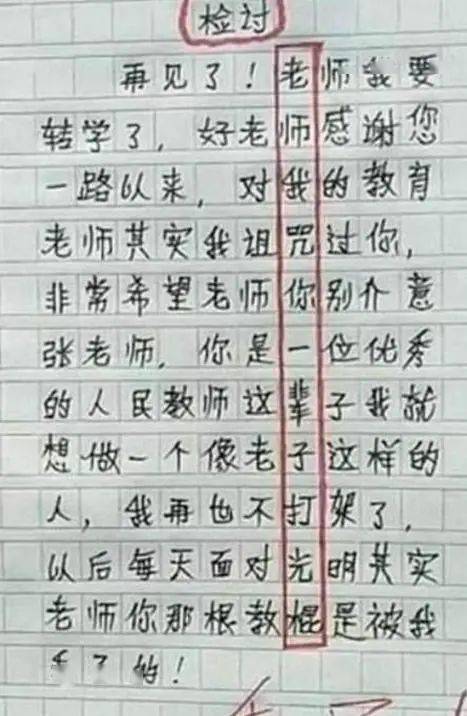 检讨
再见了！老师我要
转学了，好老师感谢您
一路以来，对我的教育
老师其实我诅咒过你，
非常希望老师你别介意
张老师，你是一位优秀
的人民教师这辈子我就
想做一个像老子这样的
人，我再也不打架了，
以后每天面对光明其实
老师你那根教棍是被我
了的！